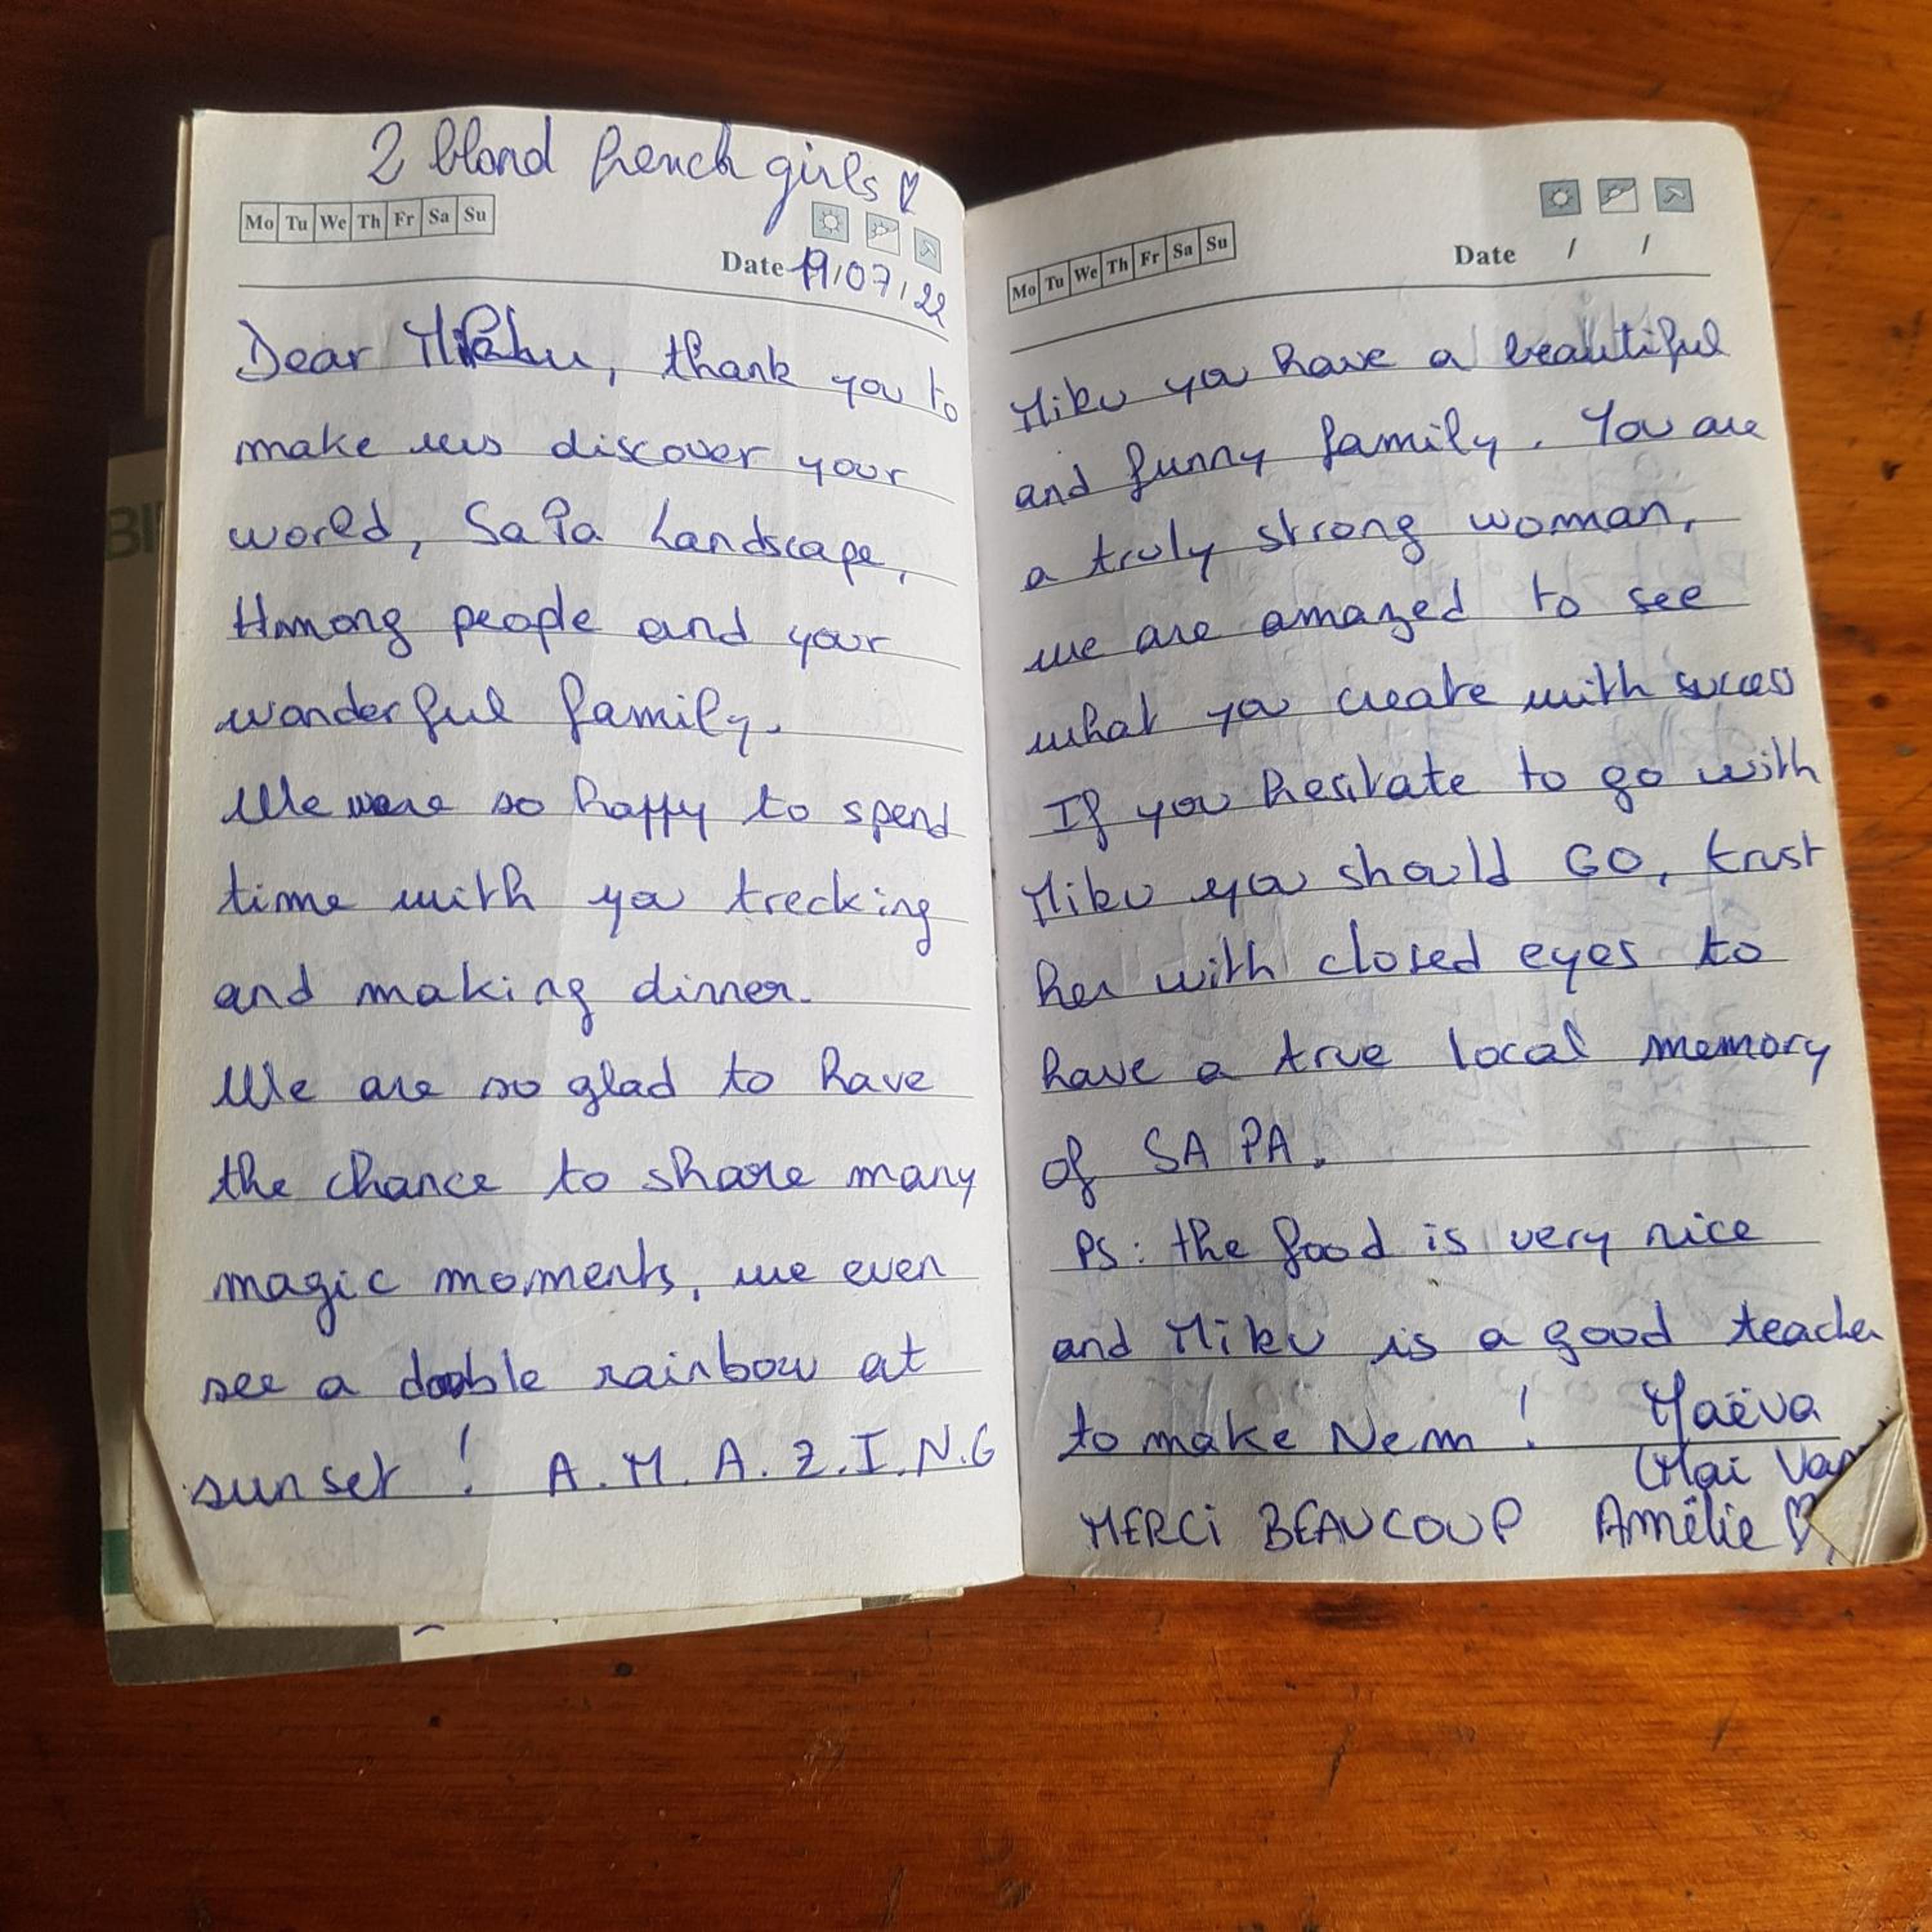 2 blond french girls ♡
Mo Tu We Th Fr Sa Su
Date 19/07/22
Dear Miku, thank you to
make us discover your
world, SaPa Landscape,
Hmong people and your
wonderful family.
We were so happy to spend
time with you trecking
and making dinner.
We are so glad to have
the chance to share many
magic moments, we even
see a double rainbow at
sunset ! A.M.A.Z.I.N.G
Mo Tu We Th Fr Sa Su
Date / /
Miku you have a beautiful
and funny family. You are
a truly strong woman,
we are amazed to see
what you create with succes
If you hesitate to go with
Miku you should GO, trust
her with closed eyes to
have a true local memory
of SA PA.
PS: the food is very nice
and Miku is a good teacher
to make Nem ! Maëva
(Mai Van
MERCi BEAUCOUP Amélie ♡
BI